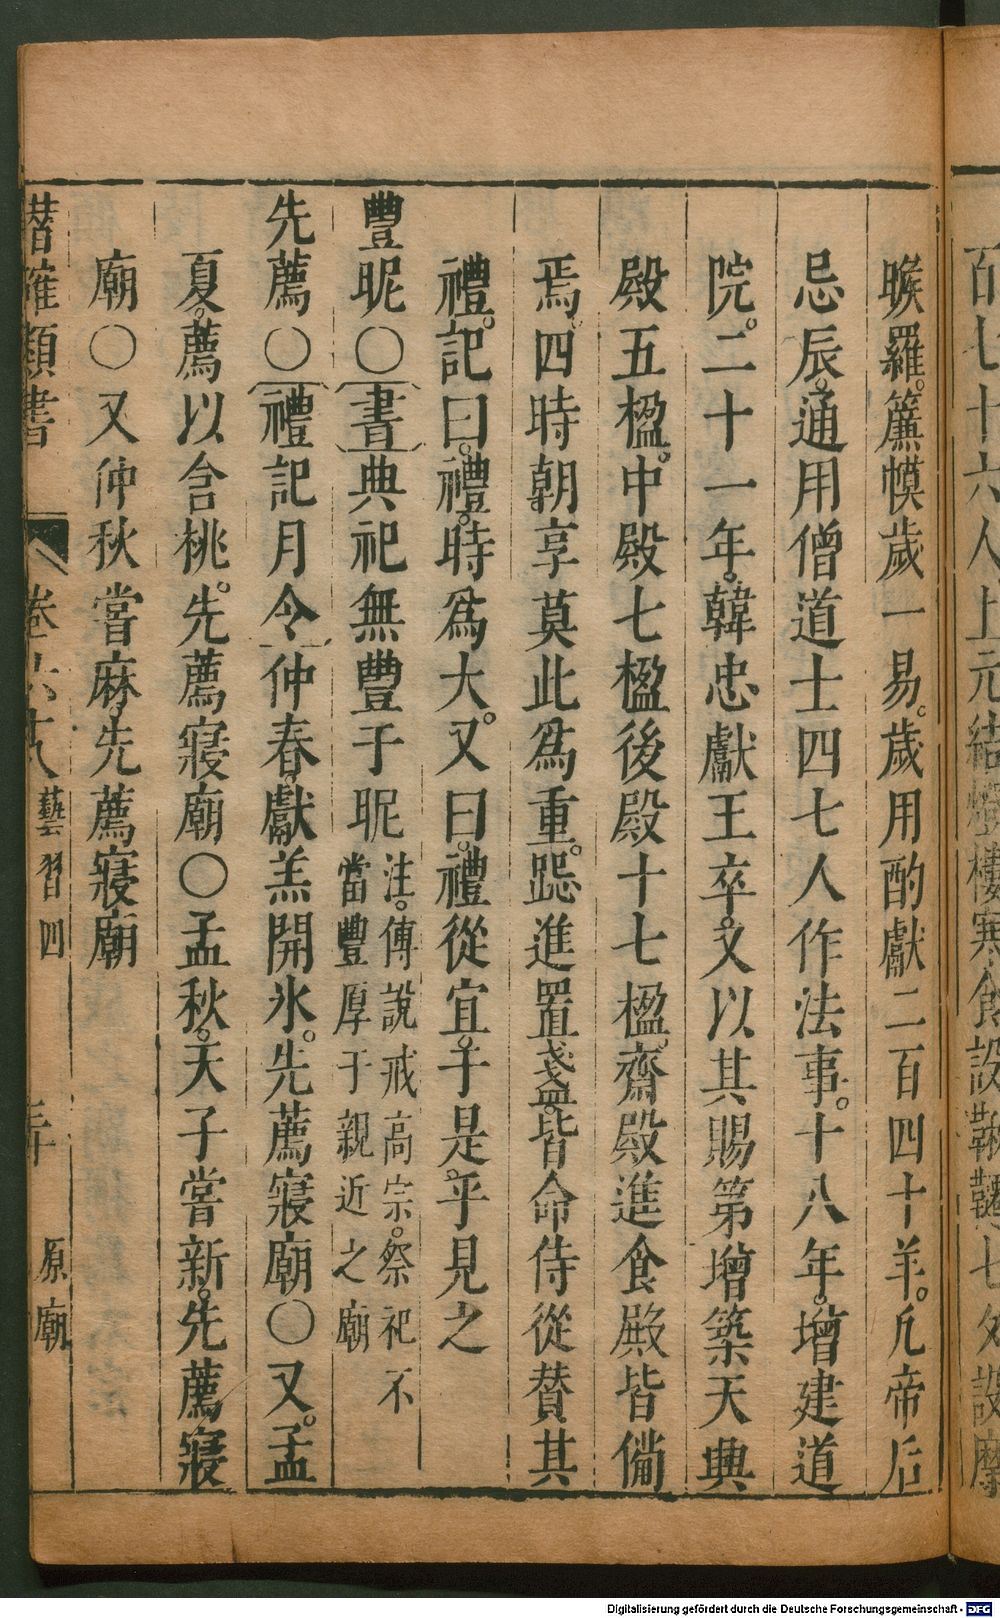 百七十六人上元結燈樓寒食設鞦韆七夕設摩
睺羅。簾幙歲一易。歲用酌獻二百四十羊。凡帝后
忌辰。通用僧道士四七人作法事。十八年。增建道
院。二十一年。韓忠獻王卒。又以其賜第增築天興
殿五楹。中殿七楹後殿十七楹。齋殿進食殿皆備
焉。四時朝享莫此爲重。跽進置盞。皆命侍從贊其
禮。記曰。禮。時爲大。又曰。禮從宜。于是。乎見之
豐昵〇書典祀無豐于昵注。傳說戒高宗。祭祀不當豐厚于親近之廟
先薦〇禮記月令仲春。獻羔開氷。先薦寢廟〇又。孟
夏。薦以含桃。先薦寢廟〇孟秋。天子嘗新。先薦寢
廟〇又仲秋嘗麻。先薦寢廟
類書 卷六十八 藝習四 原廟
Digitalisierung gefördert durch die Deutsche Forschungsgemeinschaft - DFG